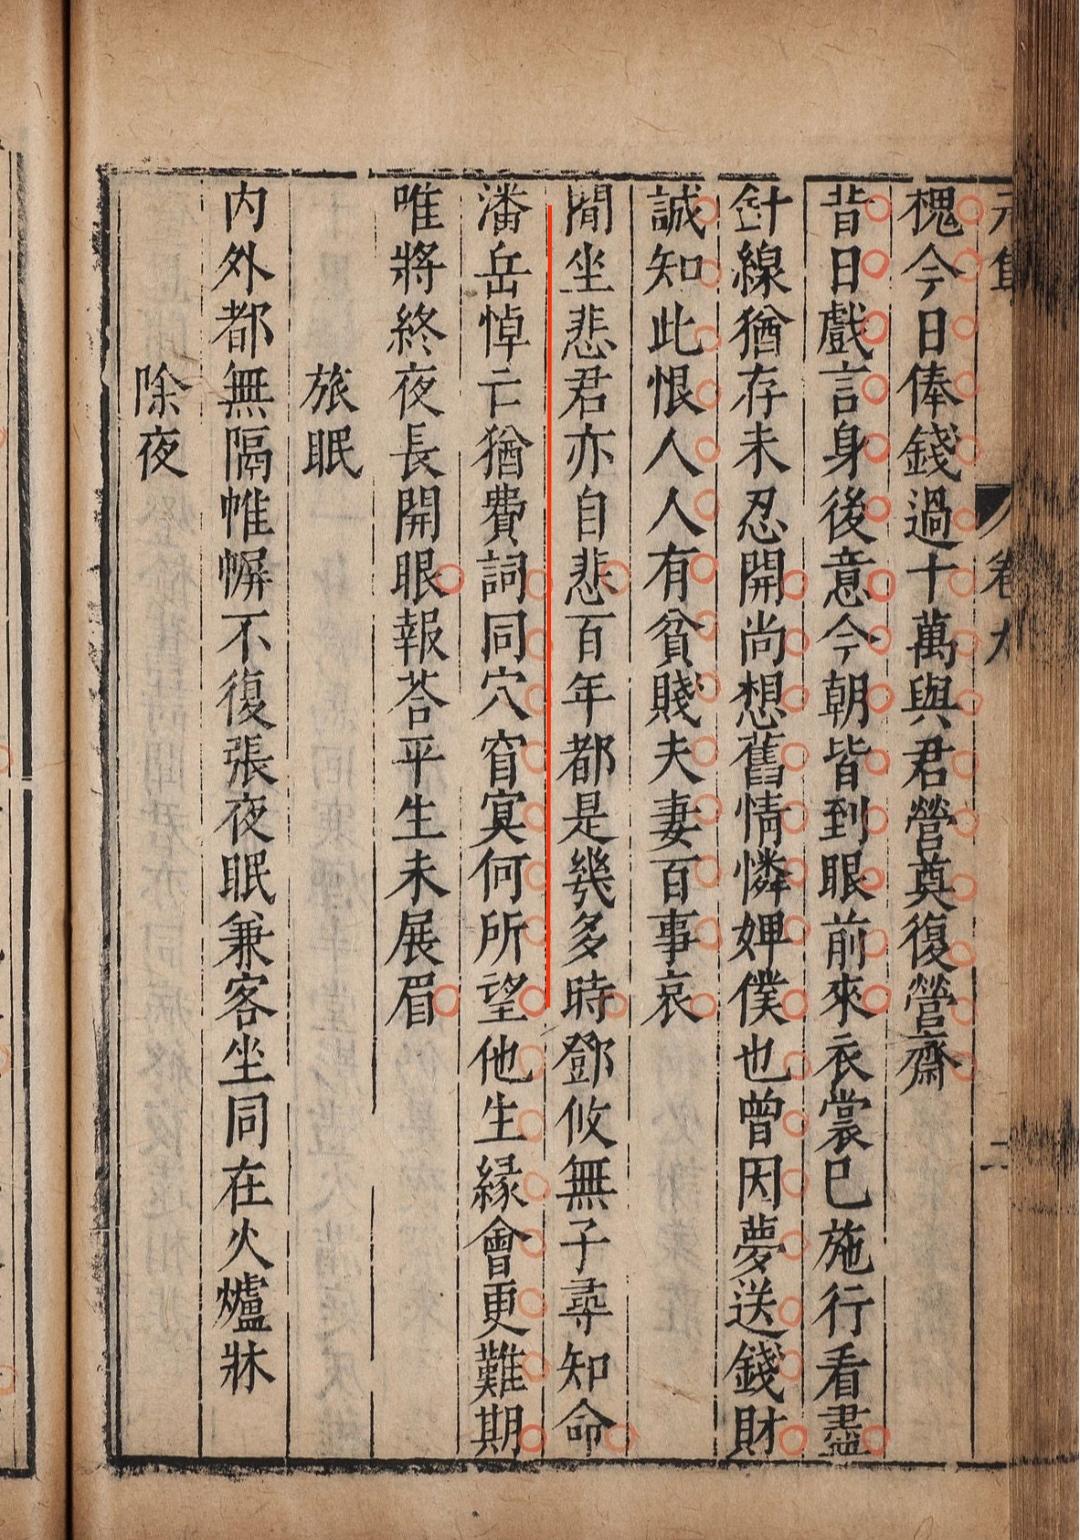 槐今日俸錢過十萬與君營奠復營齋
昔日戲言身後意今朝皆到眼前來衣裳已施行看盡
針線猶存未忍開尚想舊情憐婢僕也曾因夢送錢財
誠知此恨人人有貧賤夫妻百事哀
閒坐悲君亦自悲百年都是幾多時鄧攸無子尋知命
潘岳悼亡猶費詞同穴窅冥何所望他生緣會更難期
唯將終夜長開眼報荅平生未展眉
旅眠
内外都無隔帷幈不復張夜眠兼客坐同在火爐牀
除夜